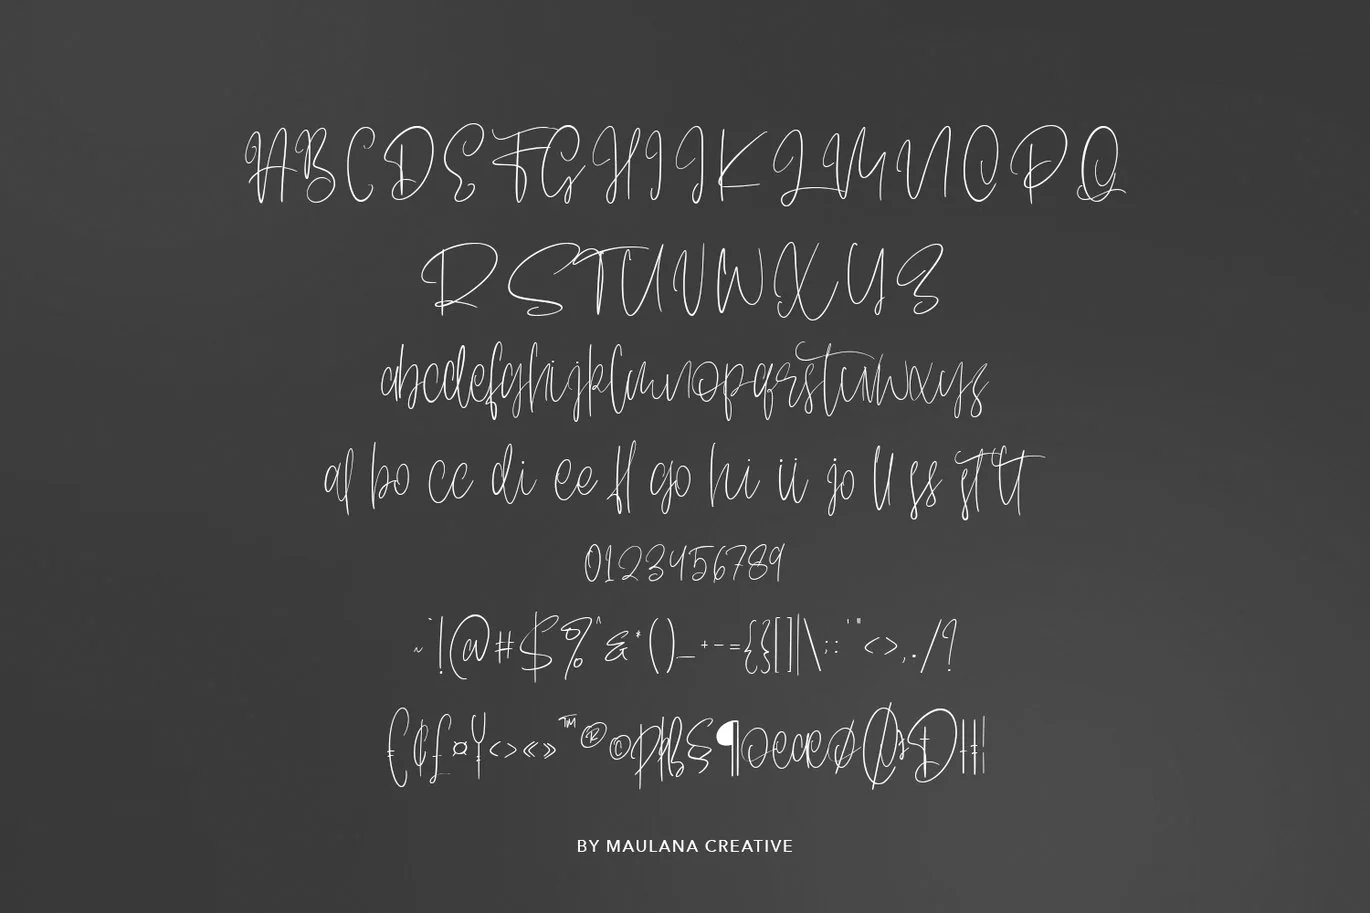 ABCDEFGHIJKLMNOPQ
RSTUVWXYZ
abcdefghijklmnopqrstuvwxyz
af bo cc di ee fl go hi ii jo ll ss st tt
0123456789
~`!@#$%^&*()_+-={}[]|\;:'"<>,./?
€¢£¤¥‹›«»™®©
BY MAULANA CREATIVE